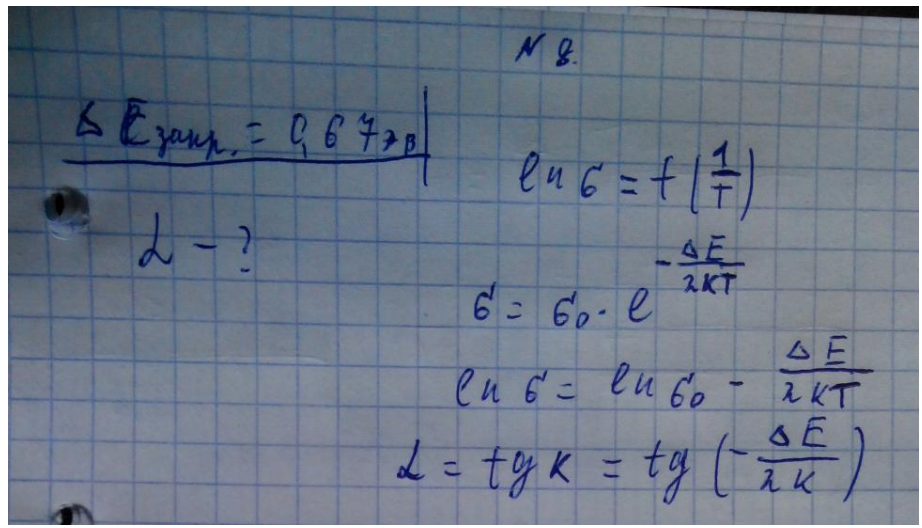 N 8.
ΔE запр. = 0,67 эв
ln σ = f (1/T)
α - ?
σ = σ₀ · e^(-ΔE/2kT)
ln σ = ln σ₀ - ΔE/2kT
α = tg k = tg (-ΔE/2k)